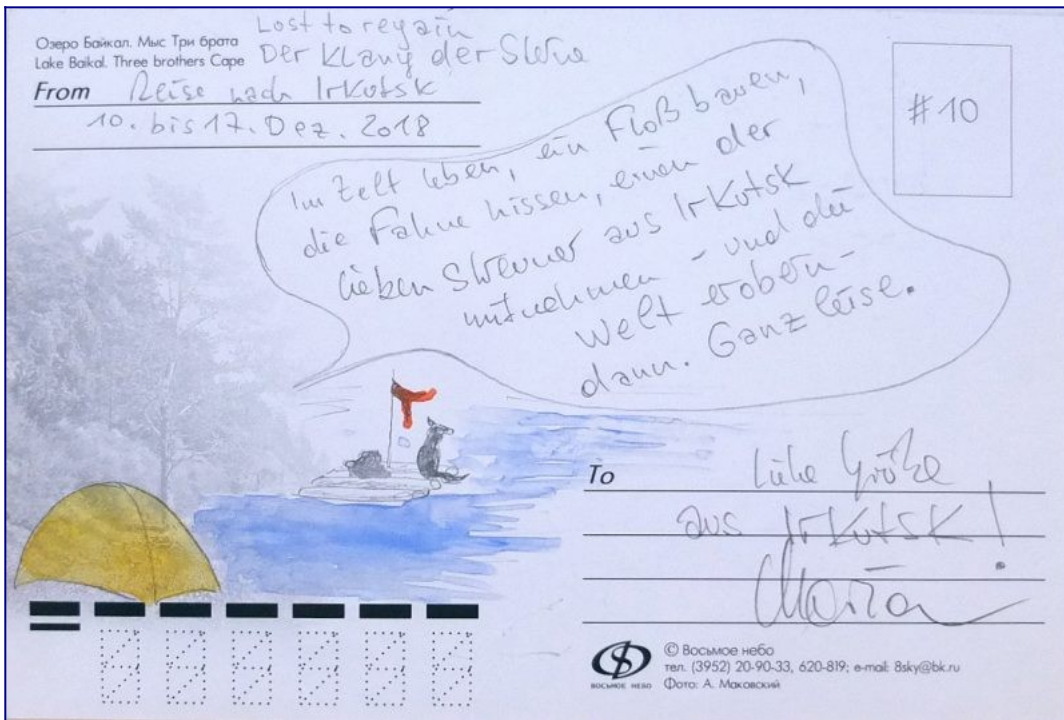 Озеро Байкал. Мыс Три брата
Lake Baikal. Three brothers Cape
Lost to regain
Der Klang der
From Reise nach Irkutsk
10. bis 17. Dez. 2018
#10
Im Zelt leben, ein Floß bauen,
die Fahne hissen, einen der
lieben Streuner aus Irkutsk
mitnehmen - und die
Welt erobern -
dann. Ganz leise.
To Liebe Grüße
aus Irkutsk!
© Восьмое небо
тел. (3952) 20-90-33, 620-819; e-mail: 8sky@bk.ru
Фото: А. Маковский
ВОСЬМОЕ НЕБО